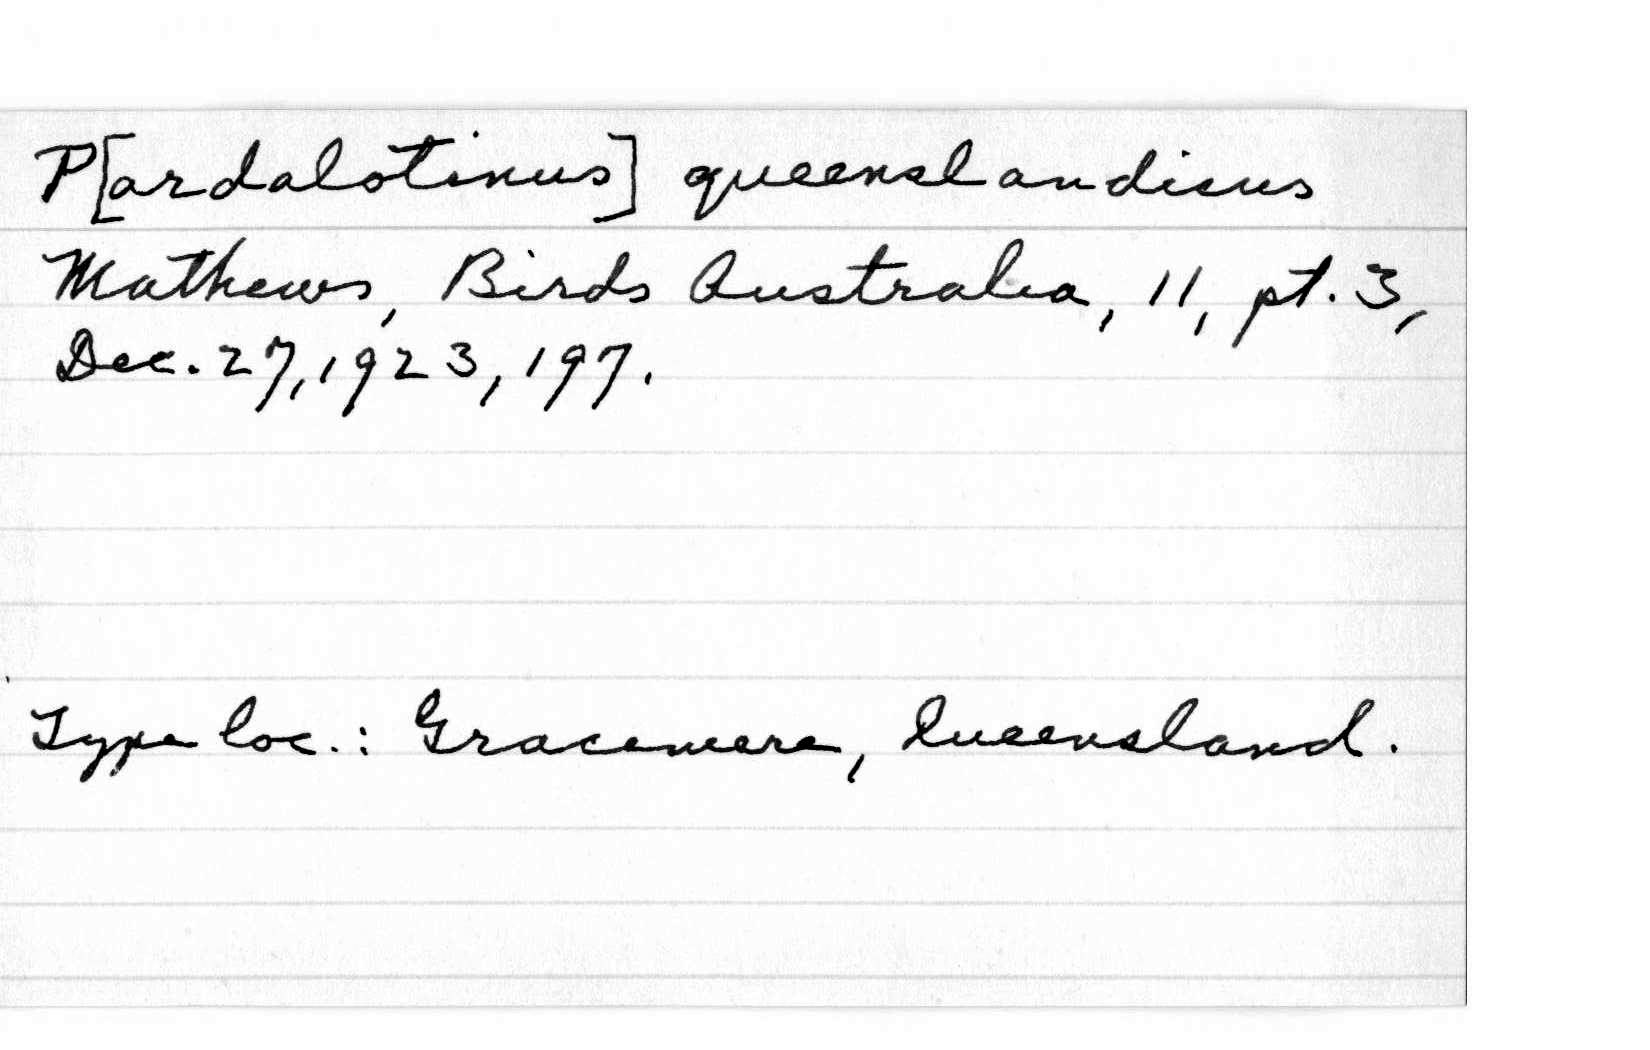 P[ardalotinus] queenslandicus
Mathews, Birds Australia, 11, pt. 3,
Dec. 27, 1923, 197.
Type loc.: Gracemere, Queensland.